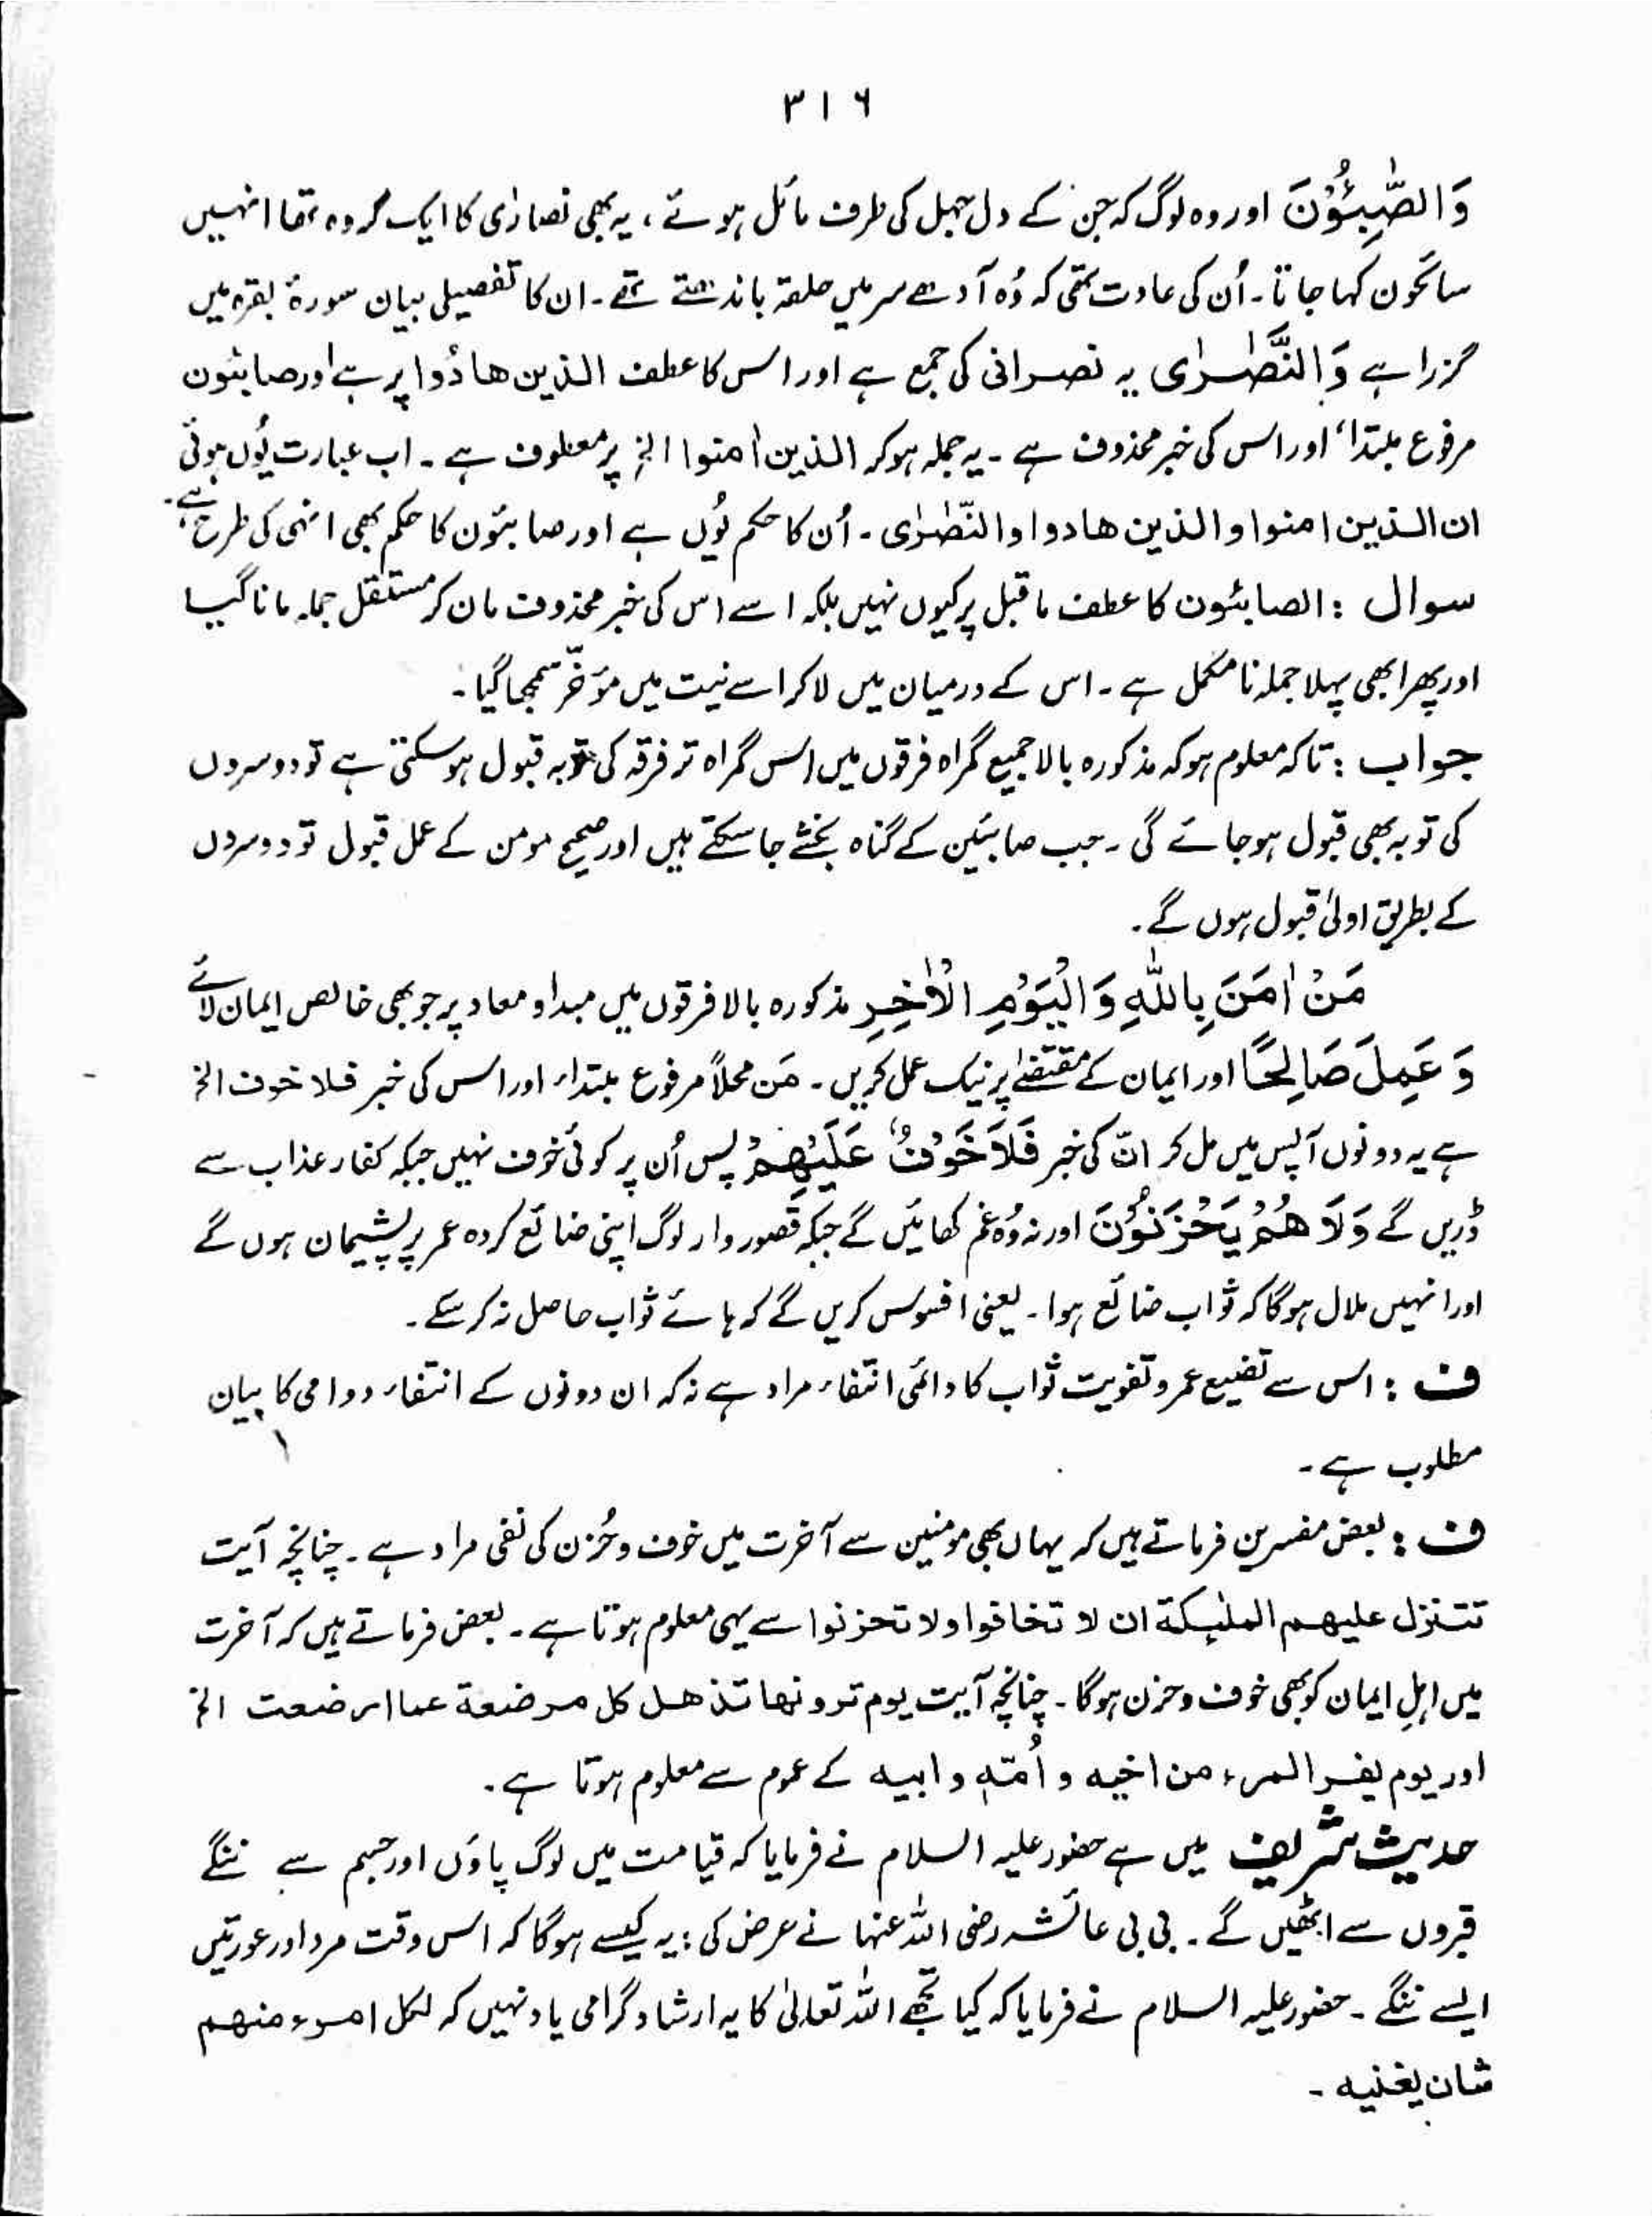 ۳۱۶
وَالصّٰبِـُٔوْنَ اور وہ لوگ کہ جن کے دل جہل کی طرف مائل ہوئے ، یہ بھی نصارٰی کا ایک گروہ تھا انہیں
سائحون کہا جاتا ۔ اُن کی عادت تھی کہ وُہ آدھے سر میں حلقہ باندھتے تھے ۔ ان کا تفصیلی بیان سورۂ بقرہ میں
گزرا ہے وَالنَّصٰرٰی یہ نصرانی کی جمع ہے اور اس کا عطف الذین ھادُوا پر ہے اور صابئون
مرفوع مبتدا، اور اس کی خبر محذوف ہے ۔ یہ جملہ ہوکر الذین اٰمنوا الخ پر معطوف ہے ۔ اب عبارت یُوں ہوئی
ان الذین امنوا والذین ھادوا والنّصٰرٰی ۔ اُن کا حکم یُوں ہے اور صابئون کا حکم بھی انہی کی طرح ہے ۔
سوال : الصابئون کا عطف ماقبل پر کیوں نہیں بلکہ اسے اس کی خبر محذوف مان کر مستقل جملہ مانا گیا
اور پھر ابھی پہلا جملہ نامکمل ہے ۔ اس کے درمیان میں لاکر اسے نیت میں مؤخّر سمجھا گیا ۔
جواب : تاکہ معلوم ہوکہ مذکورہ بالا جمیع گمراہ فرقوں میں اس گمراہ تر فرقہ کی توبہ قبول ہوسکتی ہے تو دوسروں
کی توبہ بھی قبول ہوجائے گی ۔ جب صابئین کے گناہ بخشے جاسکتے ہیں اور صحیح مومن کے عمل قبول تو دوسروں
کے بطریق اولیٰ قبول ہوں گے ۔
مَنْ اٰمَنَ بِاللّٰہِ وَالْیَوْمِ الْاٰخِرِ مذکورہ بالا فرقوں میں مبدا و معاد پر جو بھی خالص ایمان لائے
وَ عَمِلَ صَالِحًا اور ایمان کے مقتضٰے پر نیک عمل کریں ۔ مَن محلاً مرفوع مبتداء اور اس کی خبر فلا خوف الخ
ہے یہ دونوں آپس میں مل کر انّ کی خبر فَلَا خَوْفٌ عَلَیْھِمْ پس اُن پر کوئی خوف نہیں جبکہ کفار عذاب سے
ڈریں گے وَلَا ھُمْ یَحْزَنُوْنَ اور نہ وُہ غم کھائیں گے جبکہ قصوروار لوگ اپنی ضائع کردہ عمر پر پشیمان ہوں گے
اور انہیں ملال ہوگا کہ ثواب ضائع ہوا ۔ یعنی افسوس کریں گے کہ ہائے ثواب حاصل نہ کرسکے ۔
ف : اس سے تضییع عمر و تفویت ثواب کا دائمی انتفاء مراد ہے نہ کہ ان دونوں کے انتفاء دوامی کا بیان
مطلوب ہے ۔
ف : بعض مفسرین فرماتے ہیں کہ یہاں بھی مومنین سے آخرت میں خوف و حُزن کی نفی مراد ہے ۔ چنانچہ آیت
تتنزل علیھم الملٰئکۃ ان لا تخافوا ولا تحزنوا سے یہی معلوم ہوتا ہے ۔ بعض فرماتے ہیں کہ آخرت
میں اہلِ ایمان کو بھی خوف و حزن ہوگا ۔ چنانچہ آیت یوم ترونھا تذھل کل مرضعۃ عما ارضعت الخ
اور یوم یفر المرء من اخیہ و اُمّہٖ و ابیہ کے عموم سے معلوم ہوتا ہے ۔
حدیث شریف میں ہے حضور علیہ السلام نے فرمایا کہ قیامت میں لوگ پاؤں اور جسم سے ننگے
قبروں سے اٹھیں گے ۔ بی بی عائشہ رضی اللہ عنہا نے عرض کی : یہ کیسے ہوگا کہ اس وقت مرد اور عورتیں
ایسے ننگے ۔ حضور علیہ السلام نے فرمایا کہ کیا تجھے اللہ تعالیٰ کا یہ ارشاد گرامی یاد نہیں کہ لکل امرء منھم
شان یغنیہ ۔